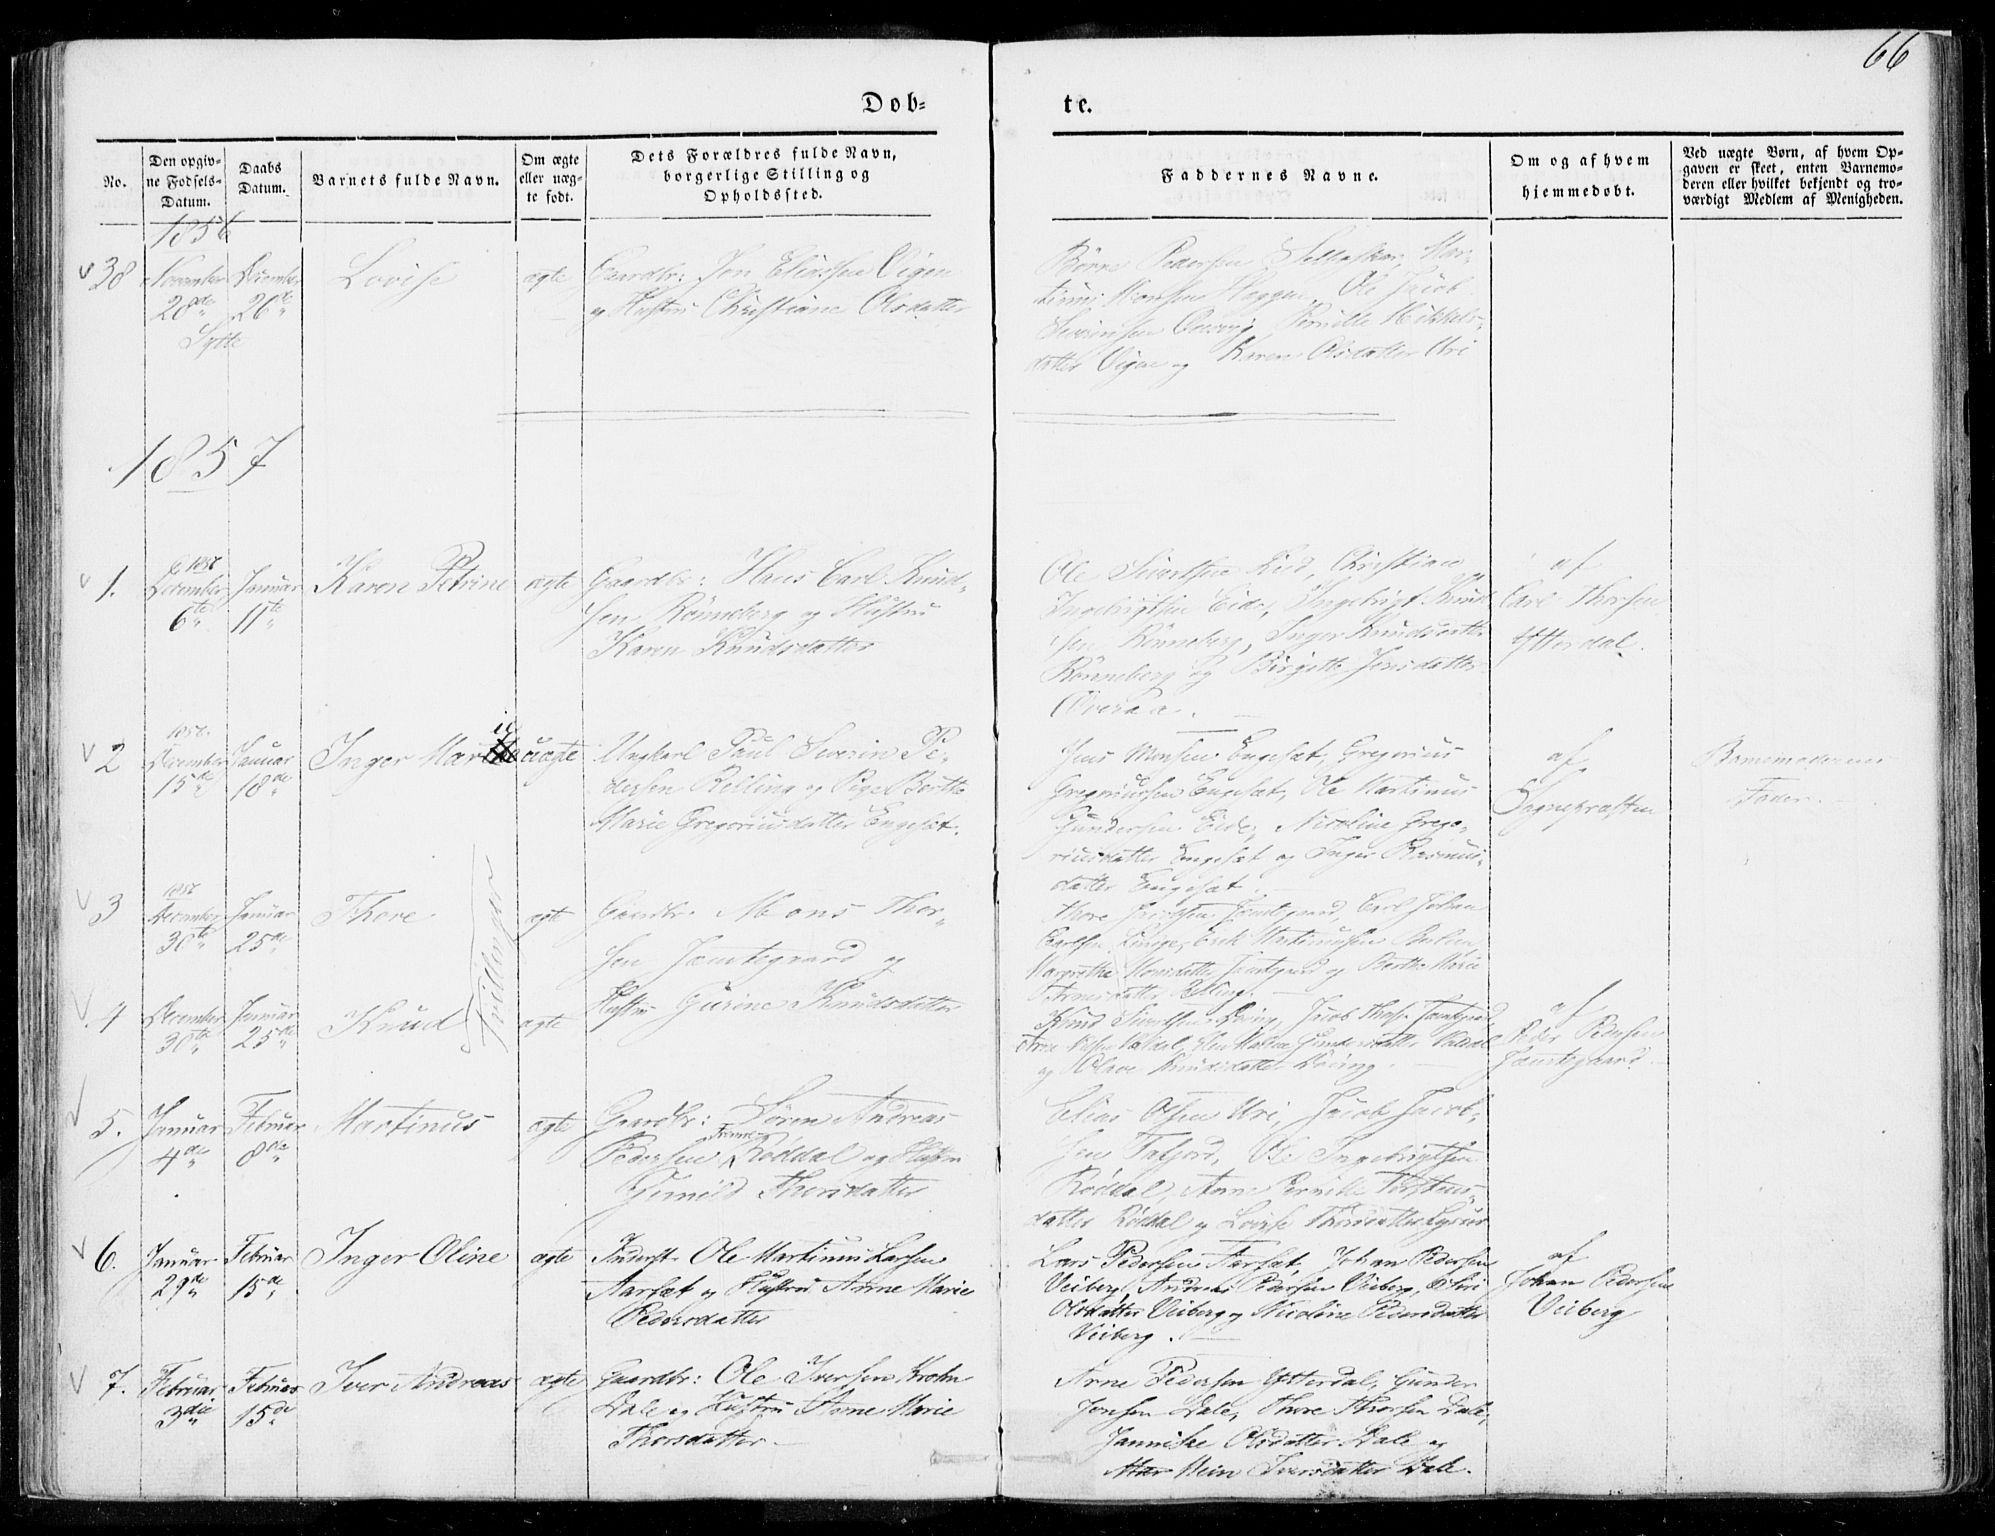 66
Døb-
te.
No.
Den opgiv-
ne Fødsels-
Datum.
Daabs
Datum.
Barnets fulde Navn.
Om ægte
eller uæg-
te født.
Dets Forældres fulde Navn,
borgerlige Stilling og
Opholdssted.
Faddernes Navne.
Om og af hvem
hjemmedøbt.
Ved uægte Børn, af hvem Op-
gaven er skeet, enten Barnemo-
deren eller hvilket bekjendt og tro-
værdigt Medlem af Menigheden.
1856
38
November
28de
December
26de
Lovise
ægte
Gaardbr: Jon Eliassen Vigen
og Hustru Christiane Olsdatter
Børre Pedersen
Ole Jacob
Pernille Mikkels-
datter Vigen og Karen Olsdatter Uri
1857
1.
1856
December
6te
Januar
11te
Karen Petrine
ægte
Gaardbr: Hans Carl Knud-
sen Rønneberg og Hustru
Karen Knudsdatter
Ole Sivertsen Eide, Christian
Ingebrigtsen Eide, Ingebrigt Knud-
sen Rønneberg, Inger Knudsdatter
Rønneberg og Birgitte Jensdatter
af
Carl Thorsen
Ytterdal.
2
1856
December
15de
Januar
18de
Inger Marie
uægte
Ungkarl Paul Severin Pe-
dersen Relling og Pigen Berthe
Marie Gregoriusdatter Engeset.
Jens Monsen Engeset, Gregorius
Gregoriussen Engeset, Ole Martinus
Gundersen Eide, Nicoline Grego-
riusdatter Engeset og Inger Rasmus-
datter Engeset.
af
Sognepræsten
Barnemoderens
Fader.
3
1856
December
30te
Januar
25de
Thore
Tvillinger
ægte
Gaardbr: Mons Thor-
sen Jamtegaard og
Hustru Gurine Knudsdatter
Thore Jacobsen Jamtegaard, Carl Johan
Carlsen Linge, Erik Martinussen
Margrethe Monsdatter Jamtegaard og Berthe Marie
Arnesdatter Relling.
4
December
30te
Januar
25de
Knud
ægte
Knud Sivertsen Døving, Jacob Thors. Jamtegaard,
Gundersdatter Valdal
og Knudsdatter Døving.
af
Peder Pedersen
Jamtegaard.
5.
Januar
4de
Februar
8de
Martinus
ægte
Gaardbr: Søren Andreas
Pedersen Røddal og Hustru
Gunild Thorsdatter
Elias Olsen Uri, Jacob Jacob-
sen Tafjord, Ole Ingebrigtsen
Røddal, Anne Pernille Torstens-
datter Røddal og Lovise Thorsdatter
6.
Januar
29de
Februar
15de
Inger Oline
ægte
Inderst Ole Martinus Larsen
Aarset og Hustru Anne Marie
Pedersdatter
Lars Pedersen Aarset, Johan Pedersen
Veiberg, Andreas Pedersen Veiberg,
Olsdatter Veiberg og Nicoline Pedersdatter
Veiberg.
af
Johan Pedersen
Veiberg
7.
Februar
3die
Februar
15de
Iver Andreas
ægte
Gaardbr: Ole Iversen Krohn
Dale og Hustru Anne Marie
Thorsdatter.
Arne Pedersen Ytterdal, Gunder
Jonsen Dale, Thore Thorsen Dale,
Jannike Olsdatter Dale og
Iversdatter Dale.